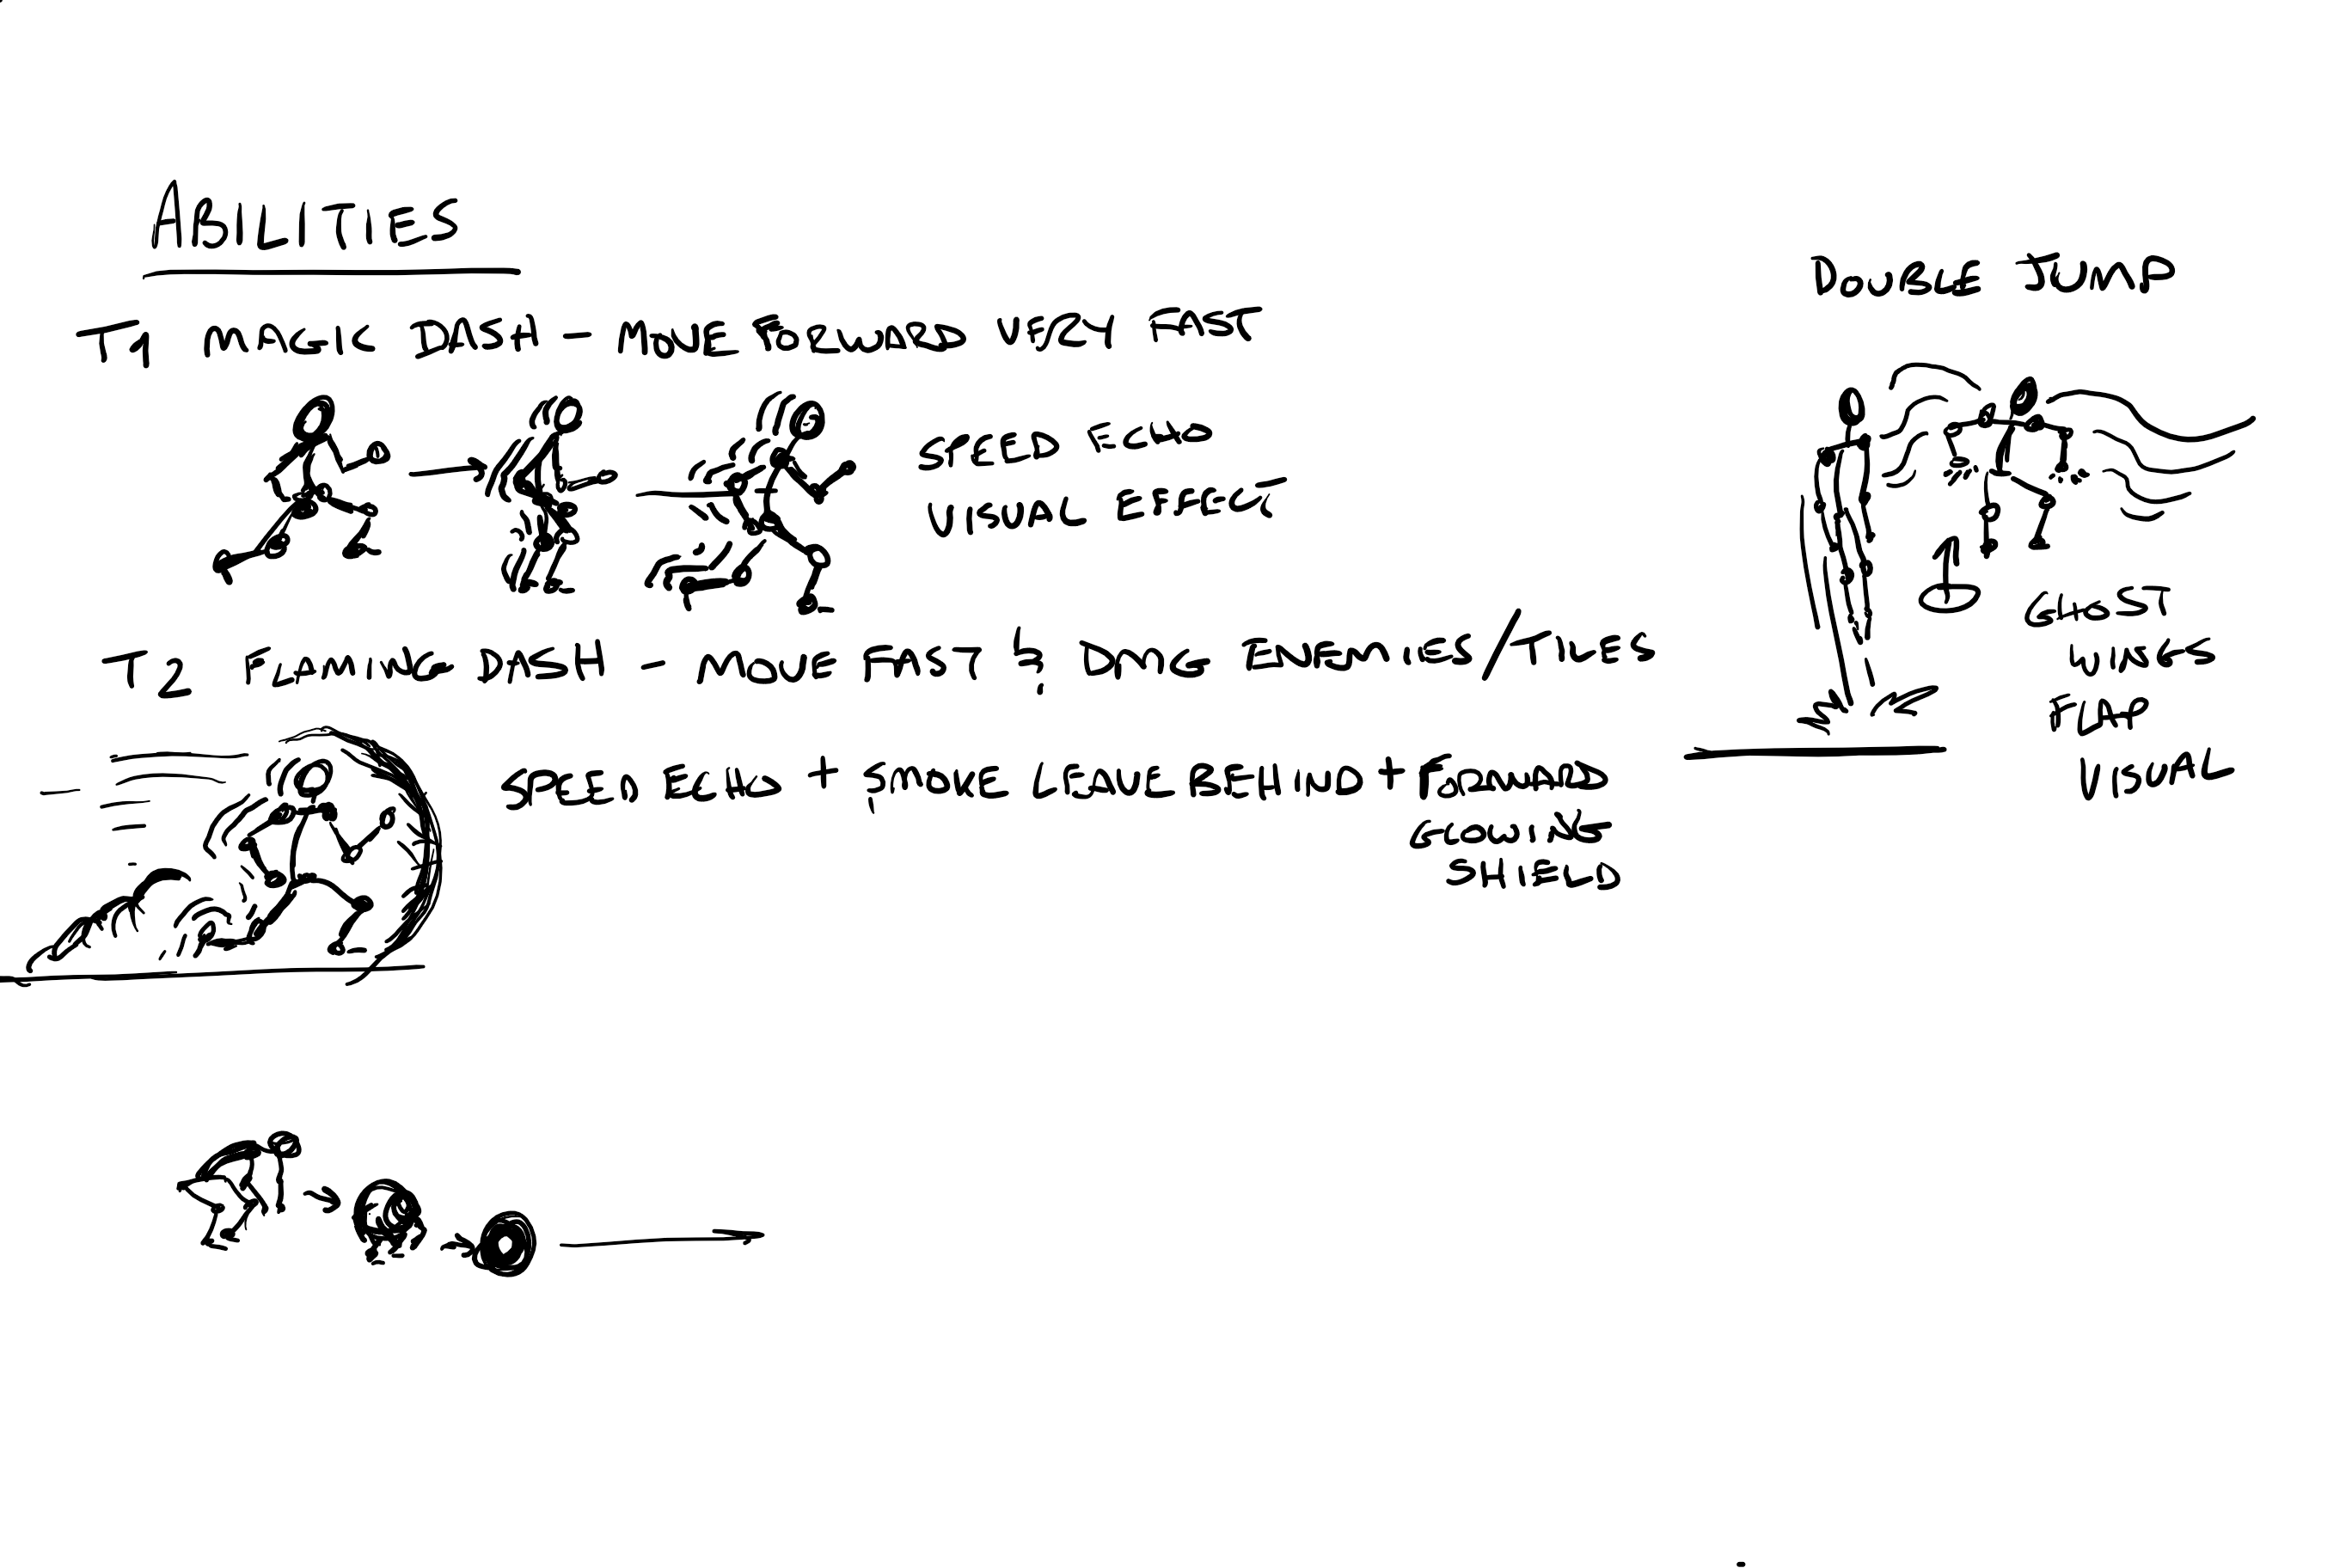 ABILITIES
T1 MAGIC DASH - MOVE FORWARD VERY FAST
SPEED ECHO
VISUAL EFFECT
T2 FLAMING DASH - MOVE FAST & DMG ENEMIES/TILES
SPEED ECHO + SMOKE LEAVE BEHIND + FORWARD
GLOWING
SHIELD
DOUBLE JUMP
GHOST
WINGS
FLAP
VISUAL